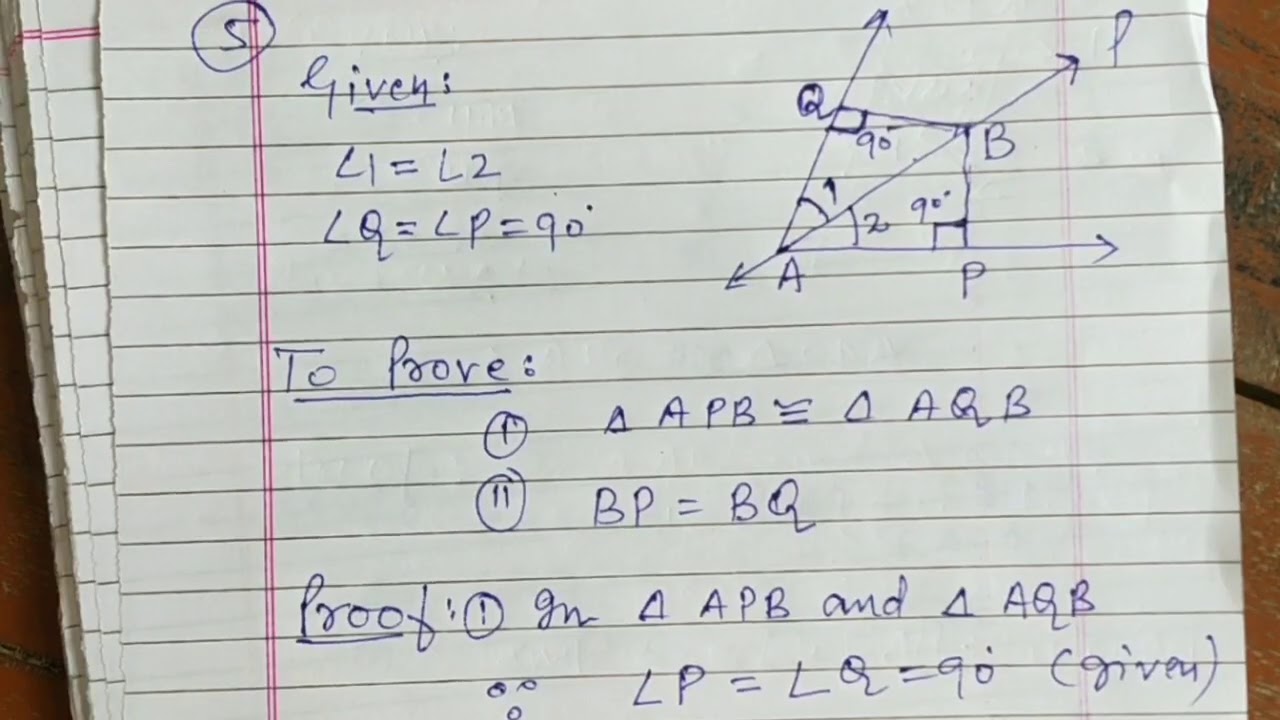 5
Given:
∠1 = ∠2
∠Q = ∠P = 90°
l
Q
90°
B
1
2
90°
A
P
To Prove:
(I) Δ APB ≅ Δ AQB
(II) BP = BQ
Proof: (I) In Δ APB and Δ AQB
∵ ∠P = ∠Q = 90° (given)